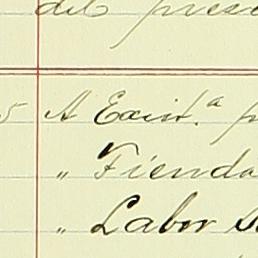 del prese
5 A Exist.ª p
" Tienda
" Labor S